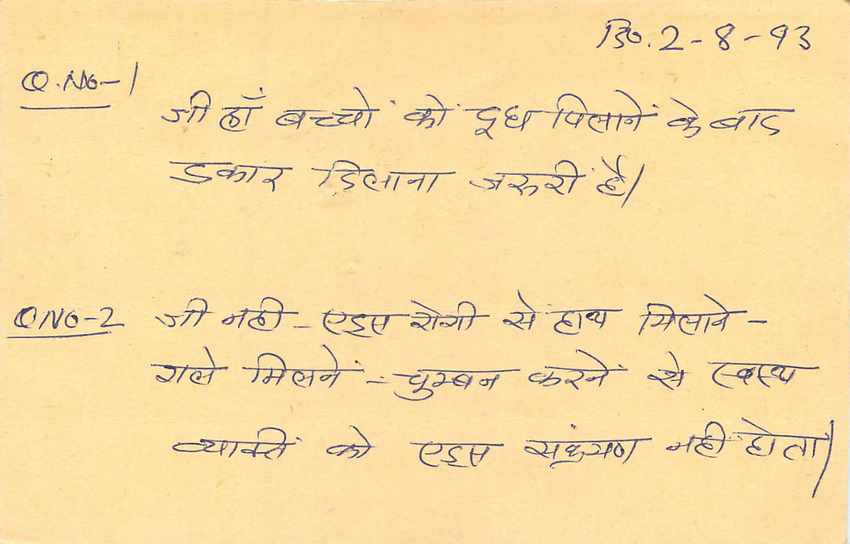 दि०. 2-8-93
Q.No-1
जी हाँ बच्चों को दूध पिलाने के बाद
डकार दिलाना जरुरी है।
Q No-2 जी नही - एड्स रोगी से हाथ मिलाने -
गले मिलने - चुम्बन करने से स्वस्थ
व्यक्ति को एड्स संक्रमण नही होता।